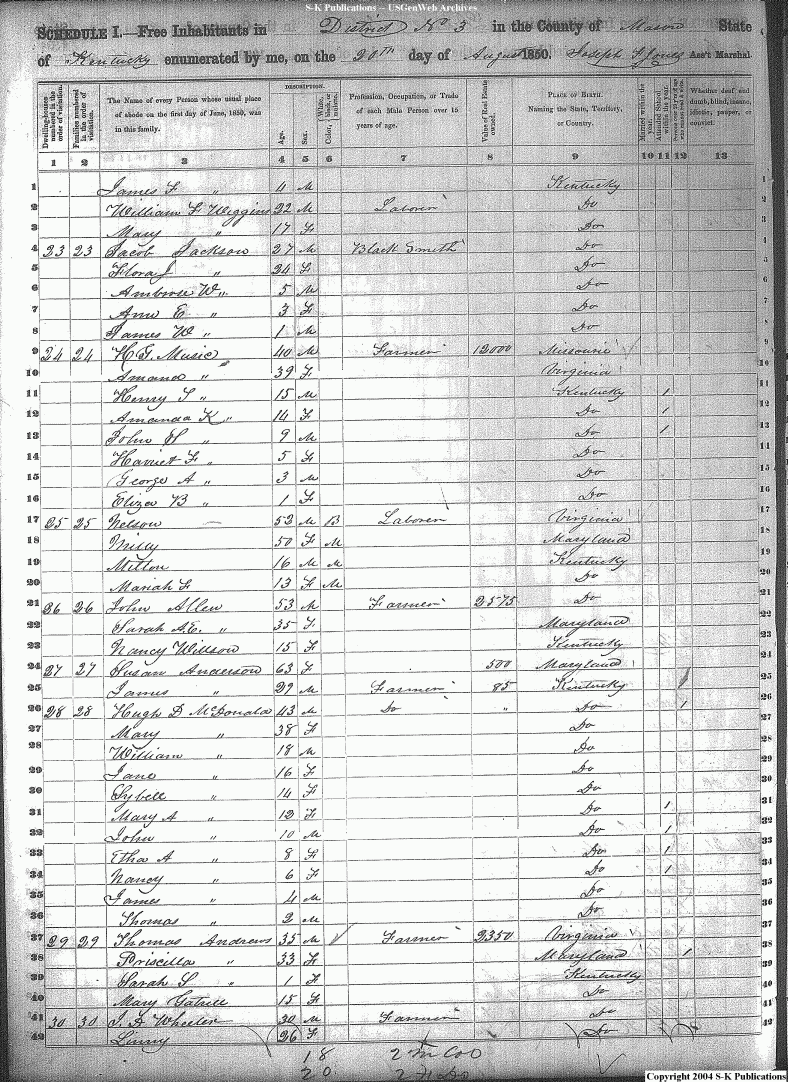 S-K Publications -- USGenWeb Archives
SCHEDULE I.—Free Inhabitants in District No 3 in the County of Mason State
of Kentucky enumerated by me, on the 20th day of August 1850. Joseph Ass't Marshal.
Dwelling-houses numbered in the order of visitation.
Families numbered in the order of visitation.
The Name of every Person whose usual place of abode on the first day of June, 1850, was in this family.
DESCRIPTION.
Age.
Sex.
Color, White, black, or mulatto.
Profession, Occupation, or Trade of each Male Person over 15 years of age.
Value of Real Estate owned.
PLACE OF BIRTH. Naming the State, Territory, or Country.
Married within the year.
Attended School within the year.
Whether deaf and dumb, blind, insane, idiotic, pauper, or convict.
1 2 3 4 5 6 7 8 9 10 11 12 13
1 James F " 4 M Kentucky 1
2 William F Wiggins 22 M Laborer Do 2
3 Mary " 17 F Do 3
4 23 23 Jacob Jackson 27 M Black Smith Do 4
5 Flora J " 24 F Do 5
6 Ambrose W " 5 M Do 6
7 Ann E " 3 F Do 7
8 James W " 1 M Do 8
9 24 24 H. G. Music 40 M Farmer 12000 Missouri 9
10 Amand " 39 F Virginia 10
11 Henry S " 15 M Kentucky 1 11
12 Amanda K " 14 F Do 1 12
13 John H " 9 M Do 1 13
14 Harriet F " 5 F Do 14
15 George A " 3 M Do 15
16 Eliza B " 1 F Do 16
17 25 25 Nelson — 52 M B Laborer Virginia 17
18 Milly 50 F M Maryland 18
19 Milton 16 M M Kentucky 19
20 Mariah F 13 F M Do 20
21 26 26 John Allen 53 M Farmer 2575 Do 21
22 Sarah A.E. " 35 F Maryland 22
23 Nancy Willson 15 F Kentucky 23
24 27 27 Susan Anderson 63 F 500 Maryland 24
25 James " 29 M Farmer 85 Kentucky 1 25
26 28 28 Hugh D McDonald 43 M Do " Do 1 26
27 Mary " 38 F Do 27
28 William " 18 M Do 28
29 Jane " 16 F Do 29
30 Sybell " 14 F Do 30
31 Mary A " 12 F Do 1 31
32 John " 10 M Do 1 32
33 Etha A " 8 F Do 1 33
34 Nancy " 6 F Do 1 34
35 James " 4 M Do 35
36 Thomas " 2 M Do 36
37 29 29 Thomas Andrews 35 M Farmer 2350 Virginia 37
38 Priscilla " 33 F Maryland 1 38
39 Sarah S " 1 F Kentucky 39
40 Mary 15 F Do 40
41 30 30 Wheeler 30 M Farmer Do 41
42 Linny 26 F Do 42
18 2 M Col
20 2 F Do
Copyright 2004 S-K Publications